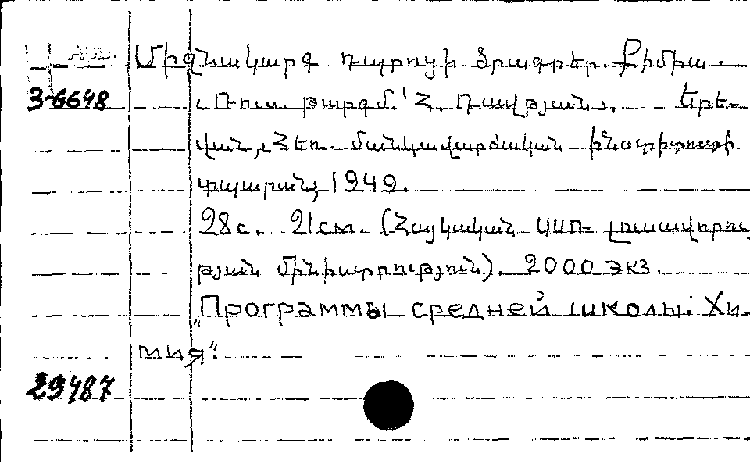 Միջնակարգ դպրոցի ծրագրեր. Քիմիա.
3-6648 Ռուս. թարգմ.՝ Հ. Դավթյան. Երե-
վան, Հեռ. մանկավարժական ինստիտուտի
տպարան, 1949.
28с. 21см. (Հայկական ՍՍՌ լուսավորու
թյան մինիստրություն). 2000 экз.
„Программы средней школы. Хи-
мия“.
29487